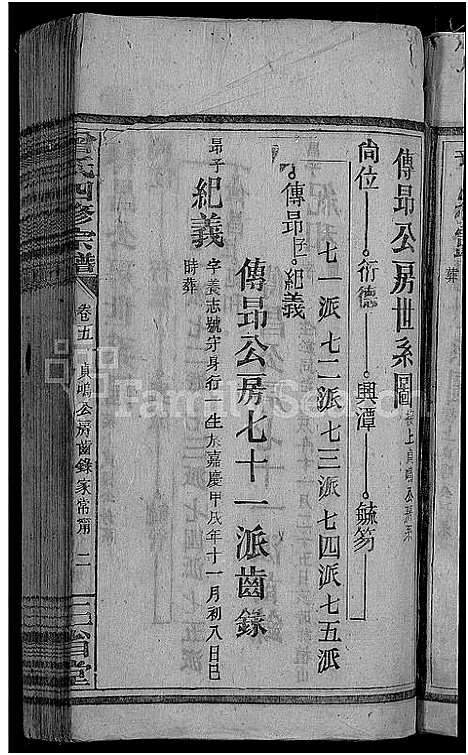 傳昻公房世系圖
尙位 衍德 興潭 毓笏
七一派 七二派 七三派 七四派 七五派
傳昻 子一 紀義
傳昻公房七十一派齒錄
昻子 紀義 字義志號守身行一生
嘉慶甲戌年十一月初八日巳
時葬
曾氏四修宗譜
卷五 貞鳴公房齒錄
二
三省堂
FamilySearch